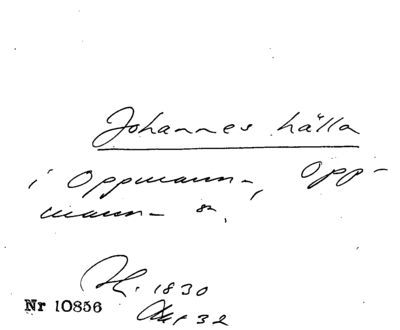 Johannes källa
i Oppmanna, Opp-
manna sn,
1830
Nr 10856